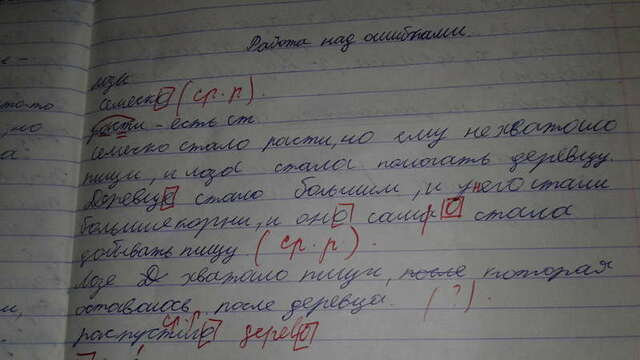 Работа над ошибками.
лози
семечко (ср.р).
расти - есть ст.
семечко стало расти, но ему не хватало
пищи, и лоза стала помогать деревцу.
Деревце стало большим, и у него стали
большие корни, и оно само стала
добывать пищу. (ср.р).
Лозе хватало пищи, после которая
оставалось после деревца. (?).
ср.р
дерево